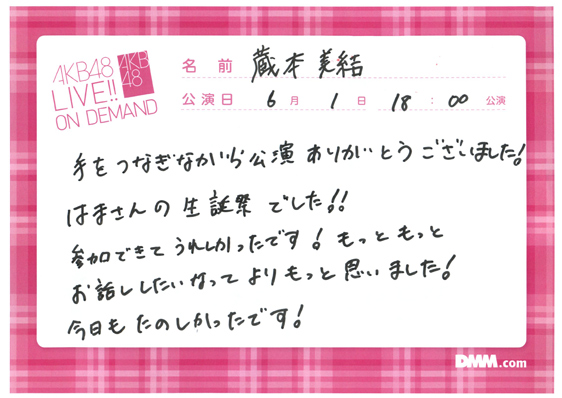 AKB48
LIVE!!
ON DEMAND
AKB
48
名前 蔵本美結
公演日 6月 1日 18:00 公演
手をつなぎながら公演 ありがとうございました!
はまさんの生誕祭でした!!
参加できてうれしかったです! もっともっと
お話ししたいなってよりもっと思いました!
今日もたのしかったです!
DMM.com